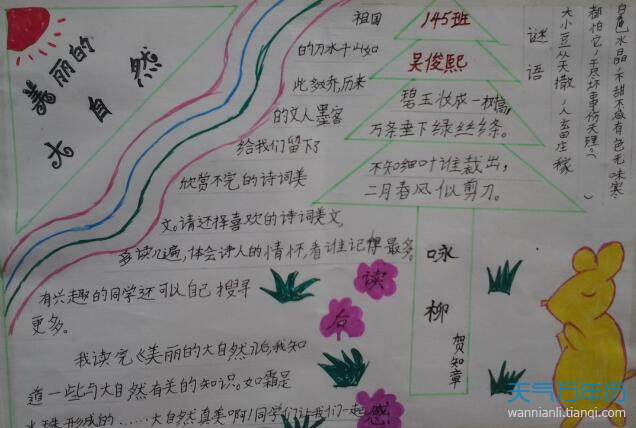 美丽的
大自然
祖国
的万水千山如
此多娇,历来
的文人墨客
给我们留下了
欣赏不完的诗词美
文。请选择喜欢的诗词美文,
多读几遍,体会诗人的情怀,看谁记得最多。
有兴趣的同学还可以自己搜寻
更多。
我读完《美丽的大自然》后,我知
道一些与大自然有关的知识。如霜是
形成的……大自然真美啊!同学们让我们一起
读
后
感
145班
吴俊熙
碧玉妆成一树高,
万条垂下绿丝绦。
不知细叶谁裁出,
二月春风似剪刀。
咏
柳
贺知章
谜语
大小豆从天撒,人畜庄稼
都怕它,尽坏事伤天理。
白色水晶,不甜不咸有色无味寒
天气万年历
wannianli.tianqi.com